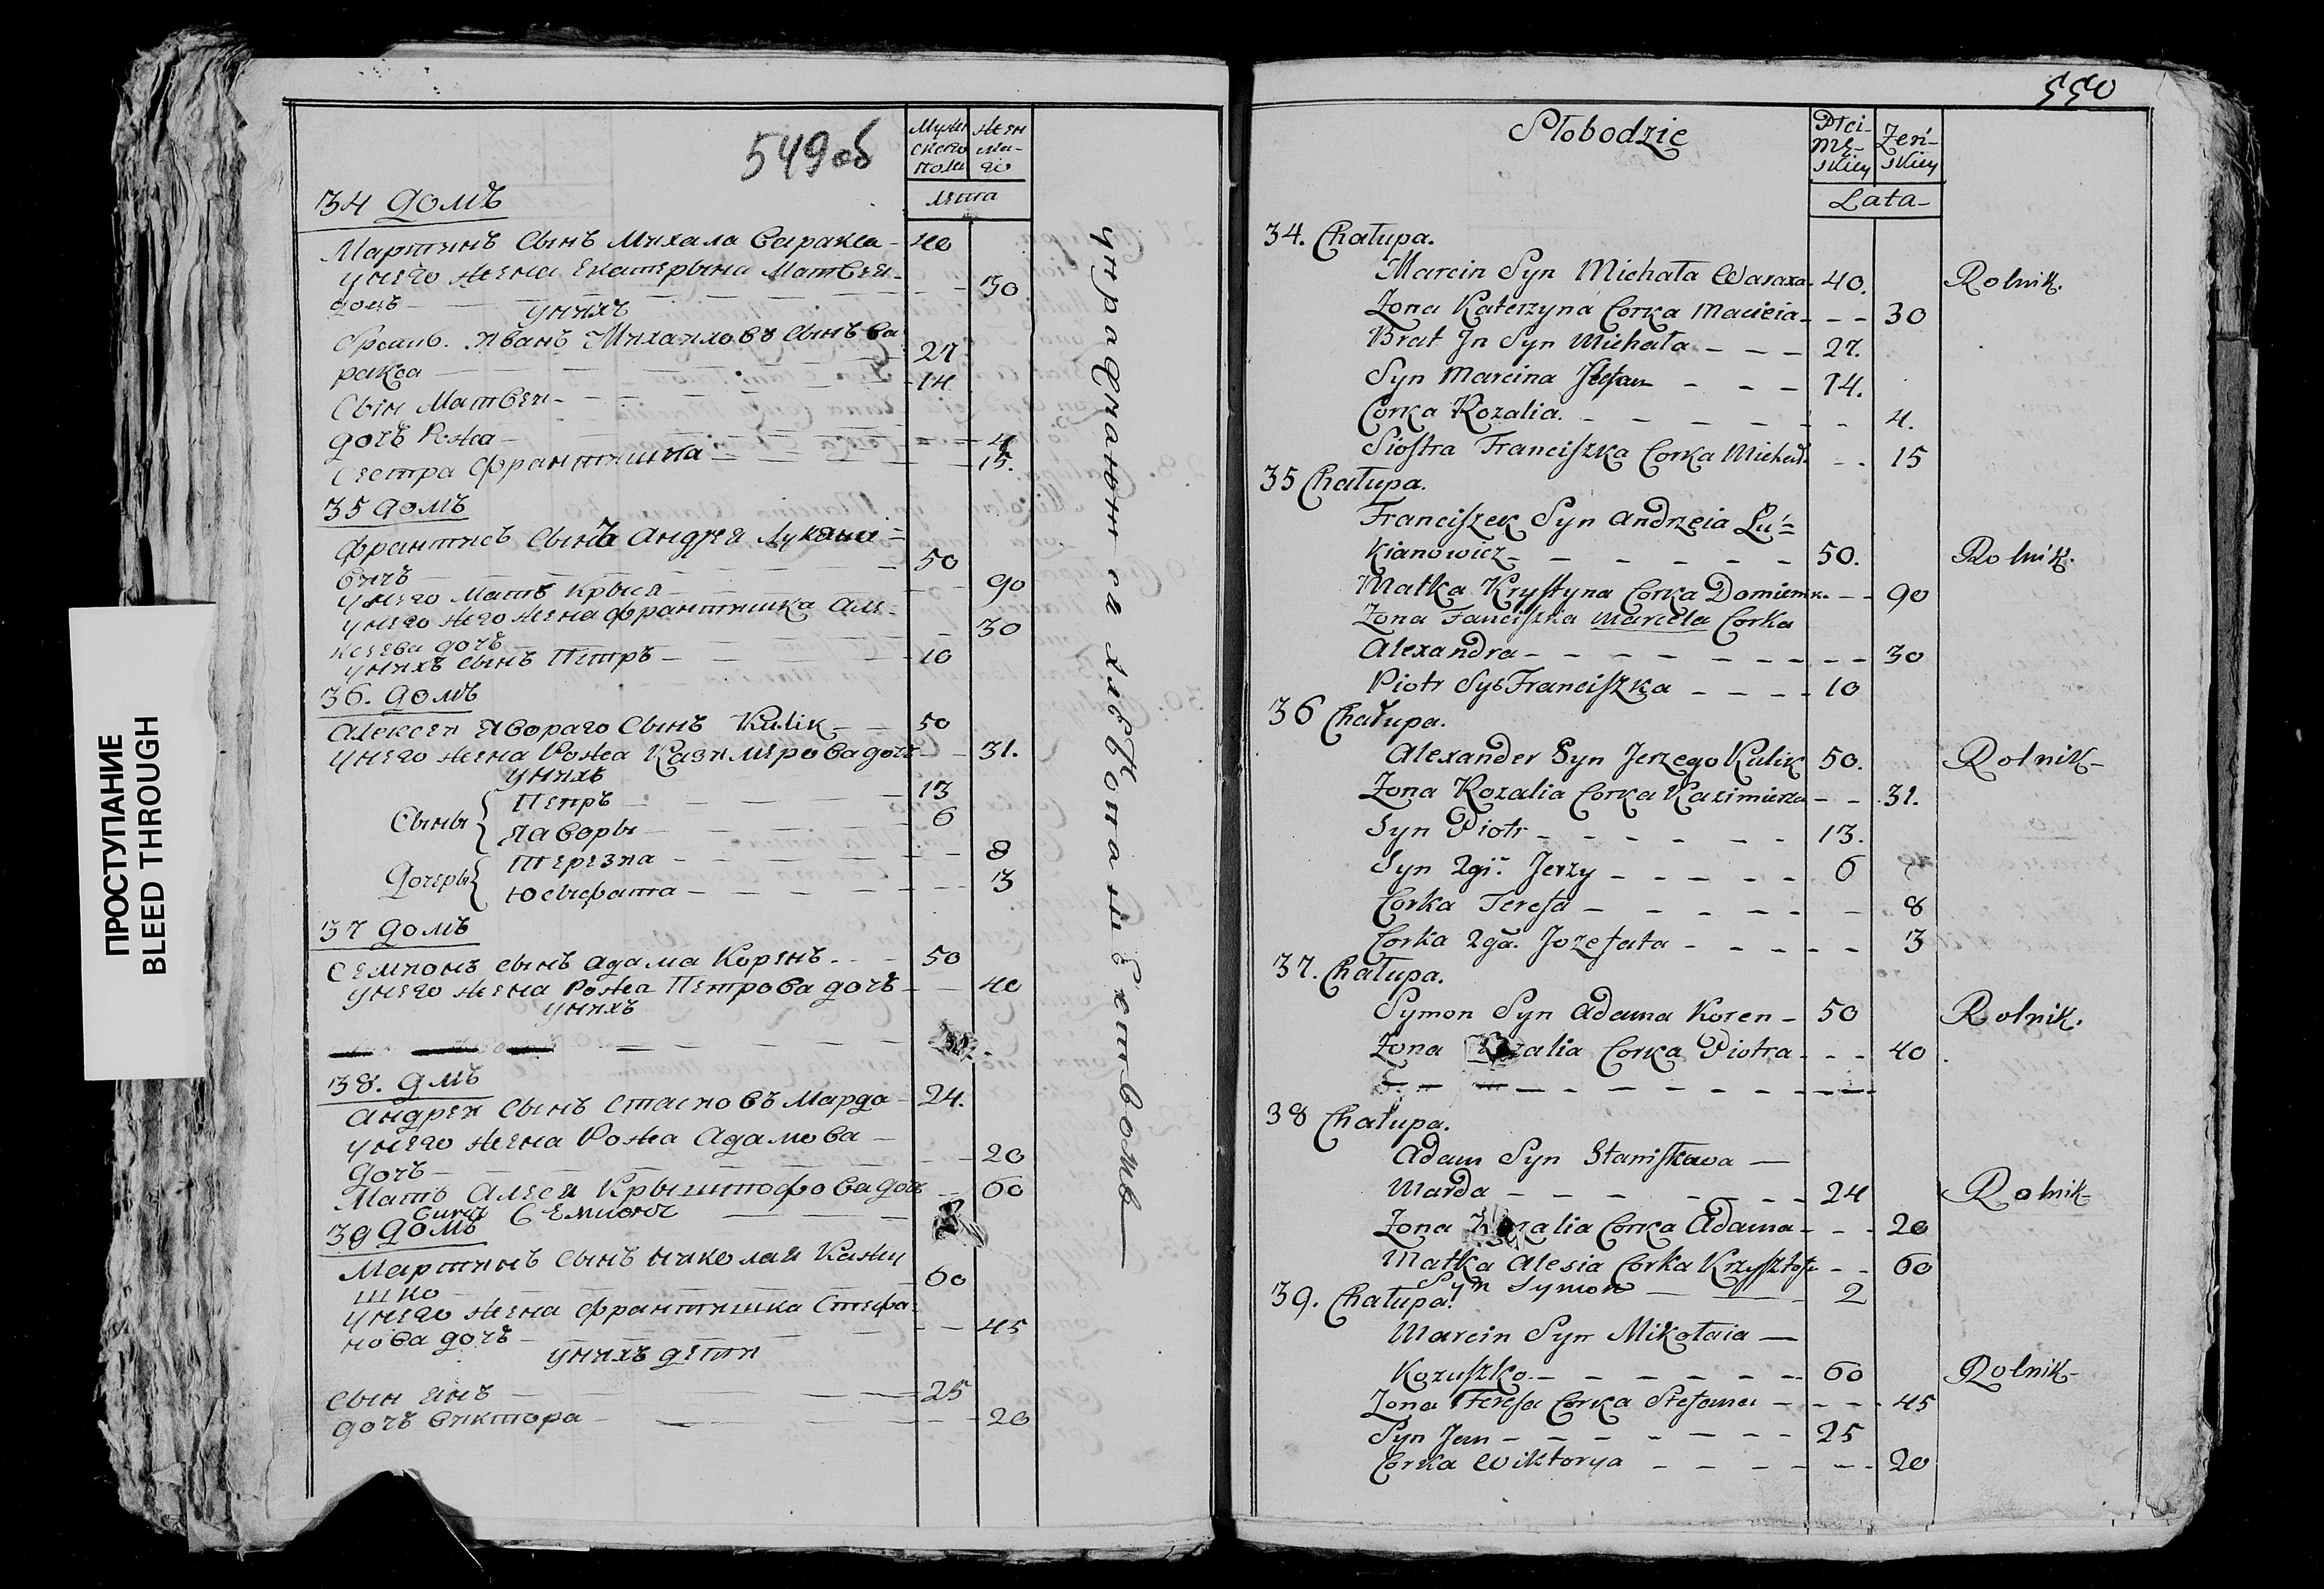 ПРОСТУПАНИЕ
BLEED THROUGH
549 об
Мужескаго пола
женскаго
лета
34 домъ
Мартинъ Сынъ Михала Варакса - 40
унего жена Екатерына Матвея-
дочь - 30
унихъ
братъ. Иванъ Михаиловъ Сынъ Ва
ракса - 27
Сын Матвеи - 14
дочъ Рожа - 4
Сестра Франтишка - 15.
35 домъ
Франтисъ Сынъ андрея Лукяно=
вичъ - 50
унего Мать Крыся - 90
унего жена франтишка але-
ксеева дочъ - 30
унихъ сынъ Петръ - 10
36. домъ
Алексеи Явораго Сынъ Kulik - 50
унего жена Рожа Казимерова дочъ - 31.
унихъ
Сыны { Петръ - 13
Яворы - 6
Дочеры { Терезиа - 8
Юсефата - 3
37 домъ
Семионъ сынъ адама Коренъ - 50
унего жена Рожа Петрова дочъ - 40
унихъ
38. дмъ
андреи Сынъ Стасиовъ Марда - 24.
унего жена Рожа Адамова -
дочъ - 20
Мать Алеся Крыштофова дочъ - 60
Сынъ Семионъ
39 домъ
Мартинъ Сынъ Николая Кажу
шко - 60
унего жена франтишка Стефа-
нова дочъ - 45
унихъ дети
Сын янъ - 25
дочъ Виктора - 20
упраджняются хлебопашеством
550
Słobodzie
Płci Męskiey
Żeńskiey
Lata -
34. Chałupa.
Marcin Syn Michała Waraxa - 40. Rolnik.
Zona Katerzyna Corka Macieia - 30
Brat Jn Syn Michała - 27.
Syn Marcina Stefan - 14.
Corka Rozalia. - 4.
Siostra Franciszka Corka Michał. - 15
35 Chałupa.
Franciszek Syn Andrzeia Łu=
kianowicz - 50. Rolnik.
Matka Krystyna Corka Dominik. - 90
Zona Fanciszka Marcela Corka
Alexandra - 30
Piotr Sys Franciszka - 10
36 Chałupa.
Alexander Syn Jerzego Kulik 50. Rolnik -
Zona Rozalia Corka Kazimierza - 31.
Syn Piotr - 13.
Syn 2gi. Jerzy - 6
Corka Teresa - 8
Corka 2ga. Jozefata - 3
37. Chałupa.
Symon Syn Adama Koren - 50 Rolnik.
Zona Rozalia Corka Piotra - 40
38 Chałupa.
Adam Syn Stanisława -
Marda - 24 Rolnik -
Zona Rozalia Corka Adama - 20
Matka Alesia Corka Krzysztofa - 60
Syn Symon - 2
39. Chałupa.
Marcin Syn Mikołaia -
Kozuszko. - 60 Rolnik -
Zona Teresa Corka Stefana - 45
Syn Jan - 25
Corka Wiktorya - 20